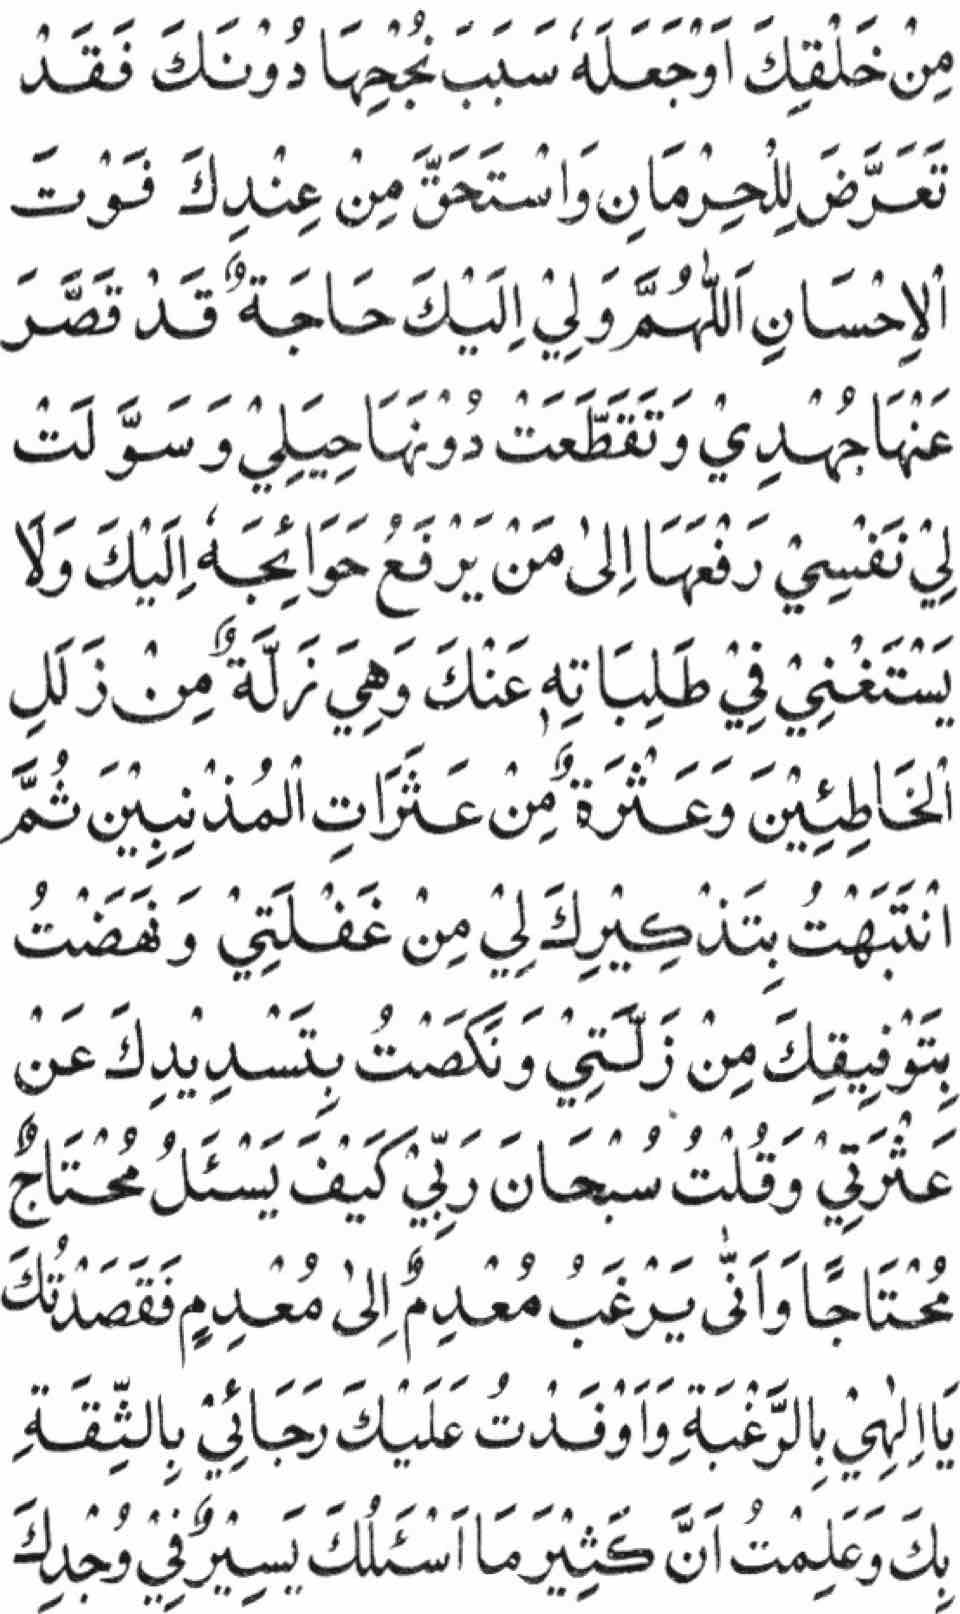 مِنْ خَلْقِكَ اَوْجَعَلَهٗ سَبَبَ نُجْحِهَا دُوْنَكَ فَقَدْ
تَعَرَّضَ لِلْحِرْمَانِ وَاسْتَحَقَّ مِنْ عِنْدِكَ فَوْتَ
الْاِحْسَانِ اَللّٰهُمَّ وَلِيْ اِلَيْكَ حَاجَةٌ قَدْ قَصَّرَ
عَنْهَا جُهْدِيْ وَتَقَطَّعَتْ دُوْنَهَا حِيَلِيْ وَسَوَّلَتْ
لِيْ نَفْسِيْ رَفْعَهَا اِلىٰ مَنْ يَرْفَعُ حَوَائِجَهٗ اِلَيْكَ وَلَا
يَسْتَغْنِيْ فِيْ طَلِبَاتِهٖ عَنْكَ وَهِيَ زَلَّةٌ مِنْ زَلَلِ
الْخَاطِئِيْنَ وَعَثْرَةٌ مِنْ عَثَرَاتِ الْمُذْنِبِيْنَ ثُمَّ
انْتَبَهْتُ بِتَذْكِيْرِكَ لِيْ مِنْ غَفْلَتِيْ وَنَهَضْتُ
بِتَوْفِيقِكَ مِنْ زَلَّتِيْ وَنَكَصْتُ بِتَسْدِيْدِكَ عَنْ
عَثْرَتِيْ وَقُلْتُ سُبْحَانَ رَبِّيْ كَيْفَ يَسْئَلُ مُحْتَاجٌ
مُحْتَاجًا وَاَنّٰى يَرْغَبُ مُعْدِمٌ اِلىٰ مُعْدِمٍ فَقَصَدْتُكَ
يَا اِلٰهِيْ بِالرَّغْبَةِ وَاَوْفَدْتُ عَلَيْكَ رَجَائِيْ بِالثِّقَةِ
بِكَ وَعَلِمْتُ اَنَّ كَثِيْرَ مَا اَسْئَلُكَ يَسِيْرٌ فِيْ وُجْدِكَ